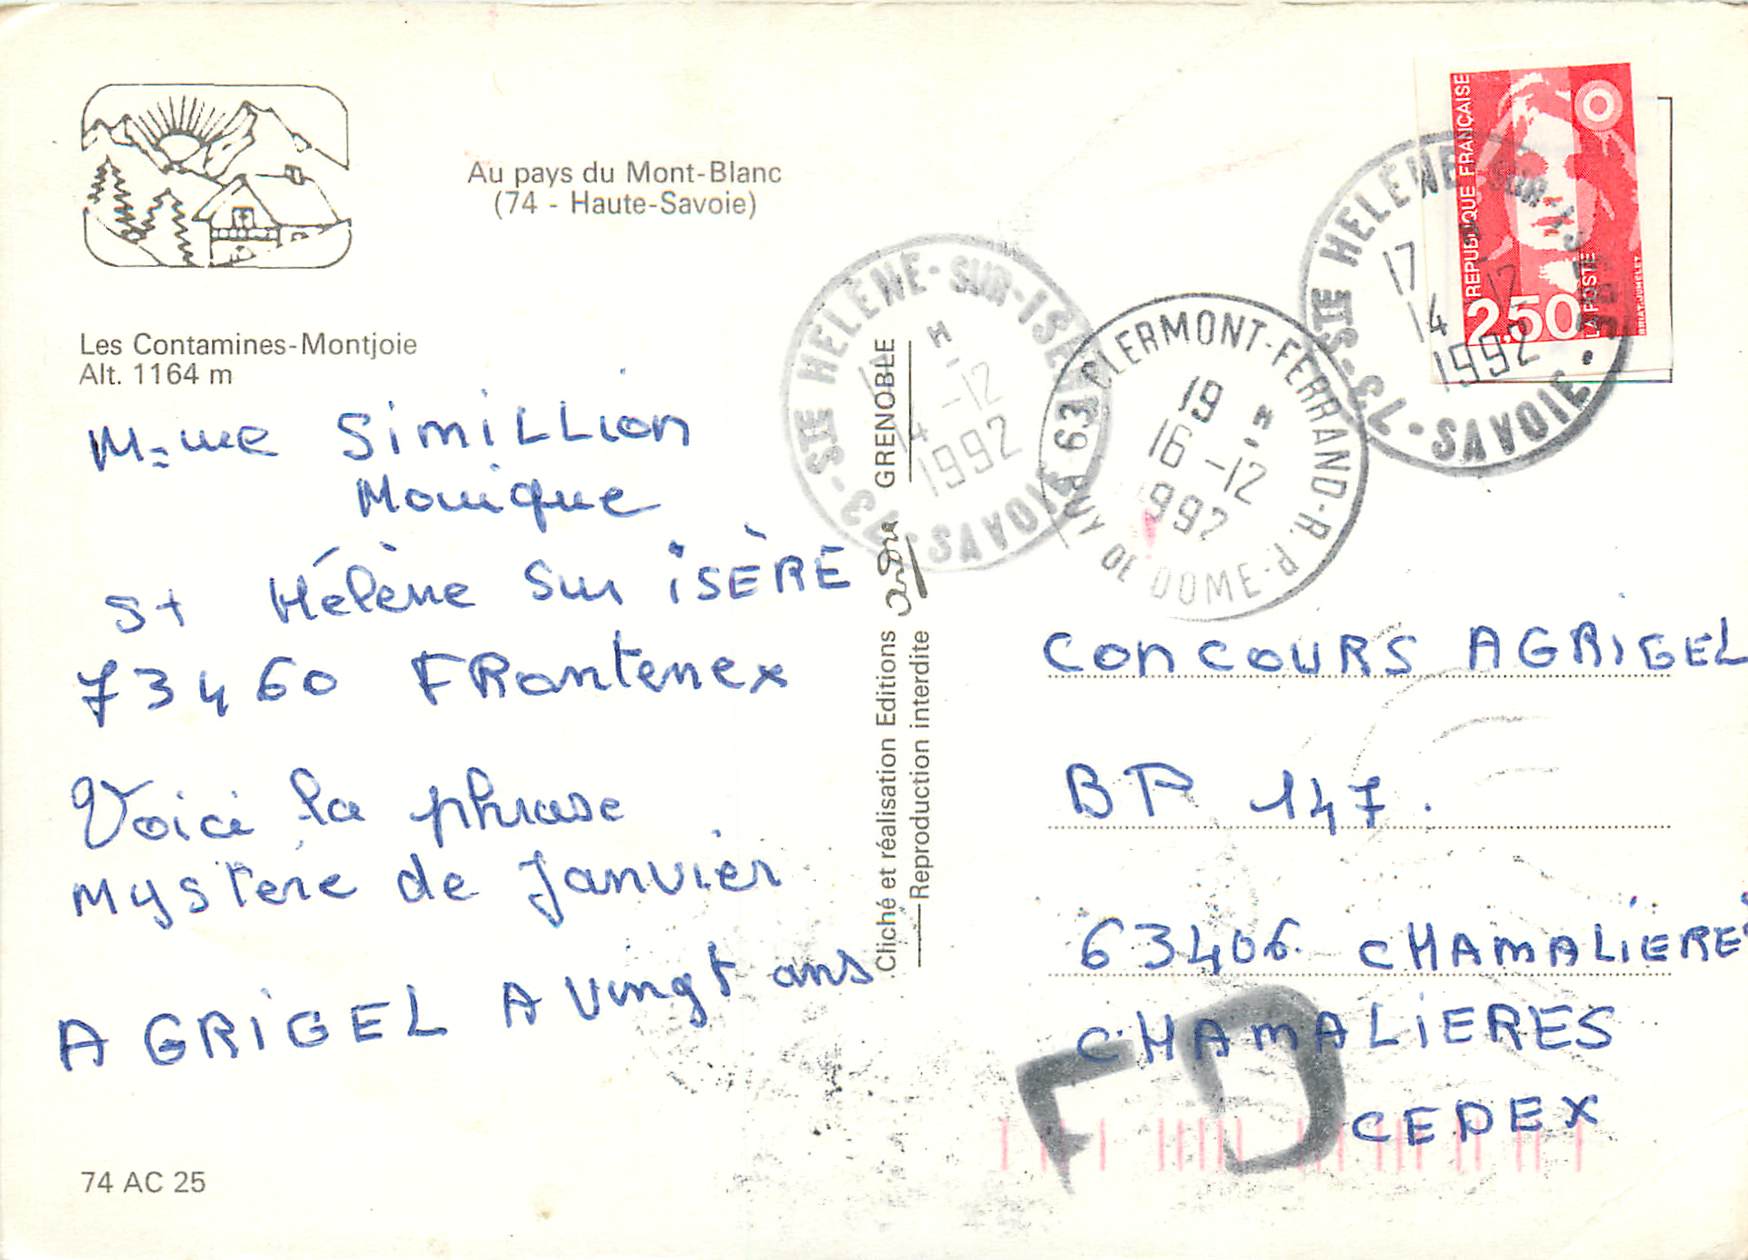 Au pays du Mont-Blanc
(74 - Haute-Savoie)
Les Contamines-Montjoie
Alt. 1164 m
Mme SimiLLion
Monique
St Hélène Sur iSÈRE
73460 FRontenex
Voici la phrase
Mystère de Janvier
AGRIGEL A vingt ans
74 AC 25
Cliché et réalisation Editions
GRENOBLE
Reproduction interdite
STE HELENE-SUR-ISERE
17 H
14 -12
1992
73-SAVOIE
63 CLERMONT-FERRAND-R.P.
19 H
16 -12
1992
PUY DE DOME
STE HELENE-SUR-ISERE
17 H
14 -12
1992
73-SAVOIE
REPUBLIQUE FRANÇAISE
2,50
LA POSTE
BRIAT-JUMELET
CONCOURS AGRIGEL
BP 147.
63406 CHAMALIERES
CHAMALIERES
CEDEX